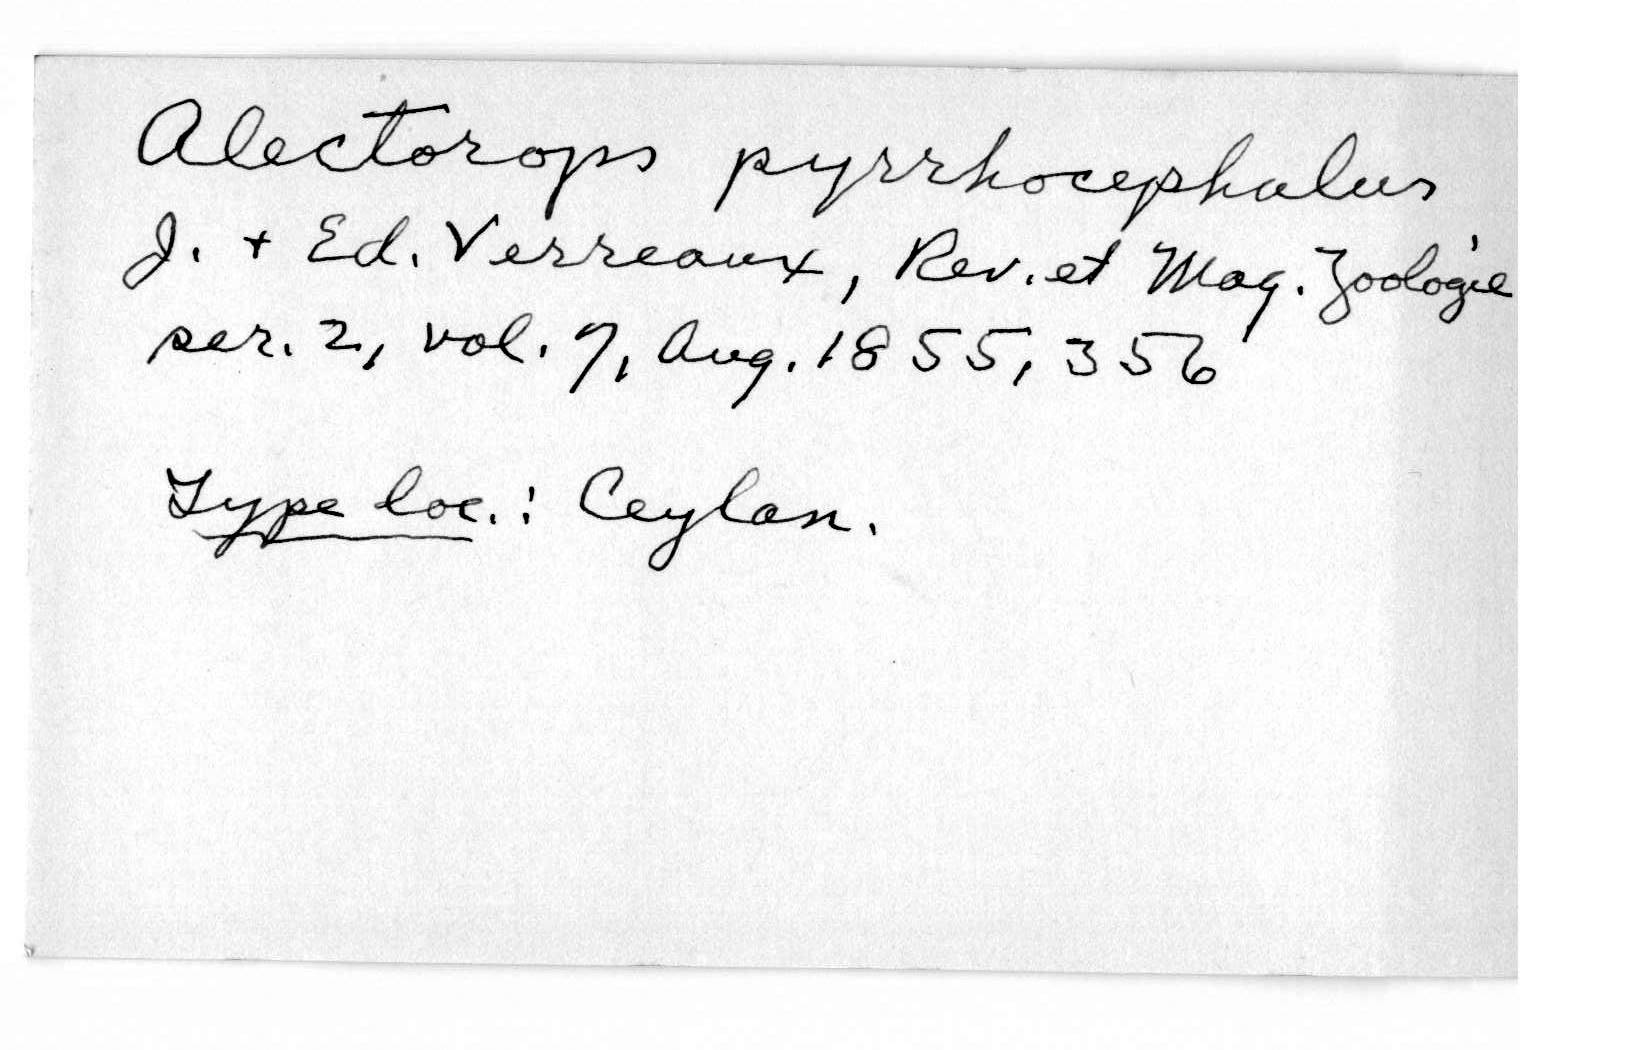 Alectorops pyrrhocephalus
J. + Ed. Verreaux, Rev. et Mag. Zoologie
ser. 2, vol. 7, Aug. 1855, 356
Type loc.: Ceylan.